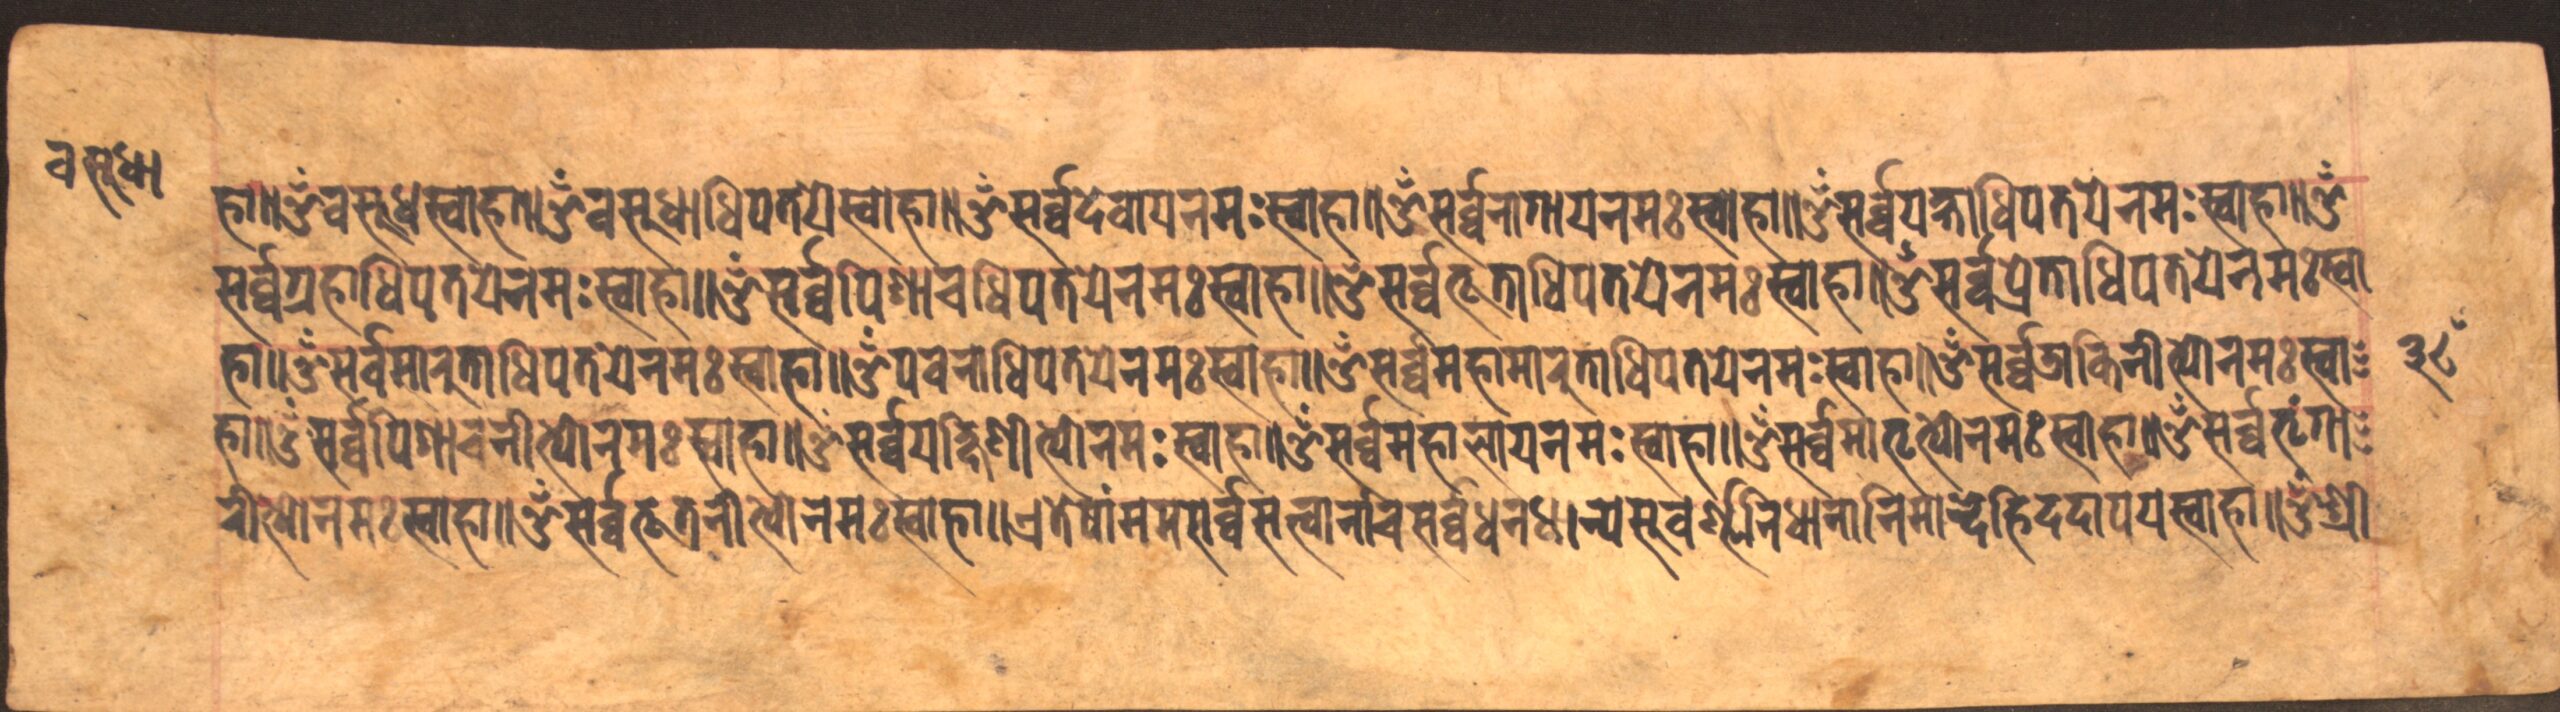 वसुधा
हा॥ॐवसुधस्वाहा॥ॐवसुधाधिपतयेस्वाहा॥ॐसर्व्वदेवायनमःस्वाहा॥ॐसर्व्वनागायनमःस्वाहा॥ॐसर्व्वयक्षाधिपतयेनमःस्वाहा॥ॐ
सर्व्वग्रहाधिपतयेनमःस्वाहा॥ॐसर्व्वपिशाचधिपतयेनमःस्वाहा॥ॐसर्व्वभूताधिपतयेनमःस्वाहा॥ॐसर्व्वप्रेताधिपतयेनमःस्वा
हा॥ॐसर्व्वमारुताधिपतयेनमःस्वाहा॥ॐपवनाधिपतयेनमःस्वाहा॥ॐसर्व्वमहामारुताधिपतयेनमःस्वाहा॥ॐसर्व्वडाकिनीभ्योनमःस्वा
३८
हा॥ॐसर्व्वपिशाचनीभ्योनमःस्वाहा॥ॐसर्व्वयक्षिणीभ्योनमःस्वाहा॥ॐसर्व्वमहालायनमःस्वाहा॥ॐसर्व्वमातृभ्योनमःस्वाहा॥ॐसर्व्वभृंगा
रीभ्योनमःस्वाहा॥ॐसर्व्वभूतनीभ्योनमःस्वाहा॥एतेषांममसर्व्वसत्त्वानांचसर्व्वधनधान्यसुवर्ण्णनिधानानिमान्देहिददापयस्वाहा॥ॐश्री